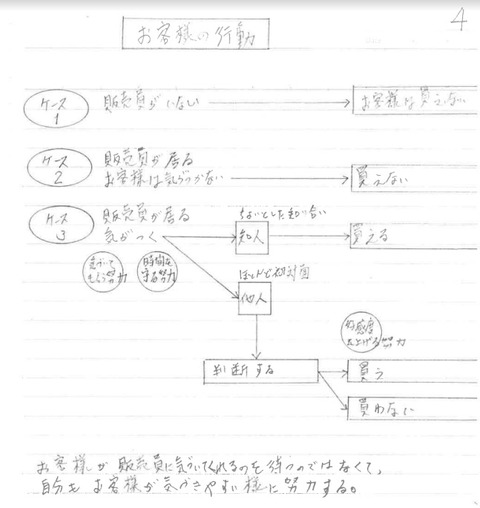 4
お客様の行動
ケース
1
販売員がいない
お客様は買えない
ケース
2
販売員が居る
お客様は気がつかない
買えない
ケース
3
販売員が居る
気がつく
ちょっとした知り合い
知人
買える
気がついて
もらう努力
時間を
守る努力
ほとんど初対面
他人
好感度
を上げる努力
判断する
買う
買わない
お客様が販売員に気づいてくれるのを待つのではなくて、
自分もお客様が気がつきやすい様に努力する。